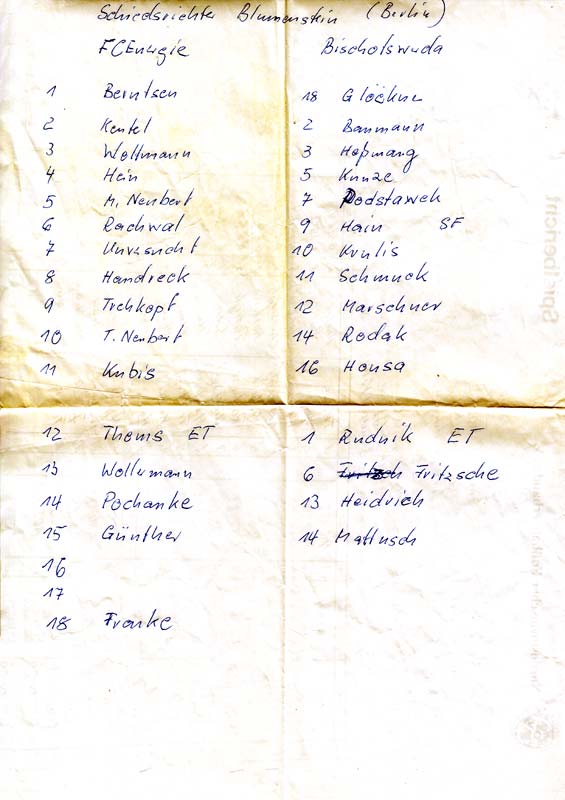 Schiedsrichter Blumenstein (Berlin)
FCEnergie Bischofswerda
1 Berntsen 18 Glöckner
2 Kentel 2 Baumann
3 Woltmann 3
4 Hein 5 Kunze
5 M. Neubert 7 Podstawek
6 Rachwal 9 Hain SF
7 Unversucht 10 Krulis
8 Handreck 11 Schmuck
9 Trehkopf 12 Marschner
10 T. Neubert 14 Rodak
11 Kubis 16 Housa
12 Thoms ET 1 Rudnik ET
13 Wollermann 6 Fritzsche
14 Pochanke 13 Heidrich
15 Günther 14 Mattusch
16
17
18 Franke